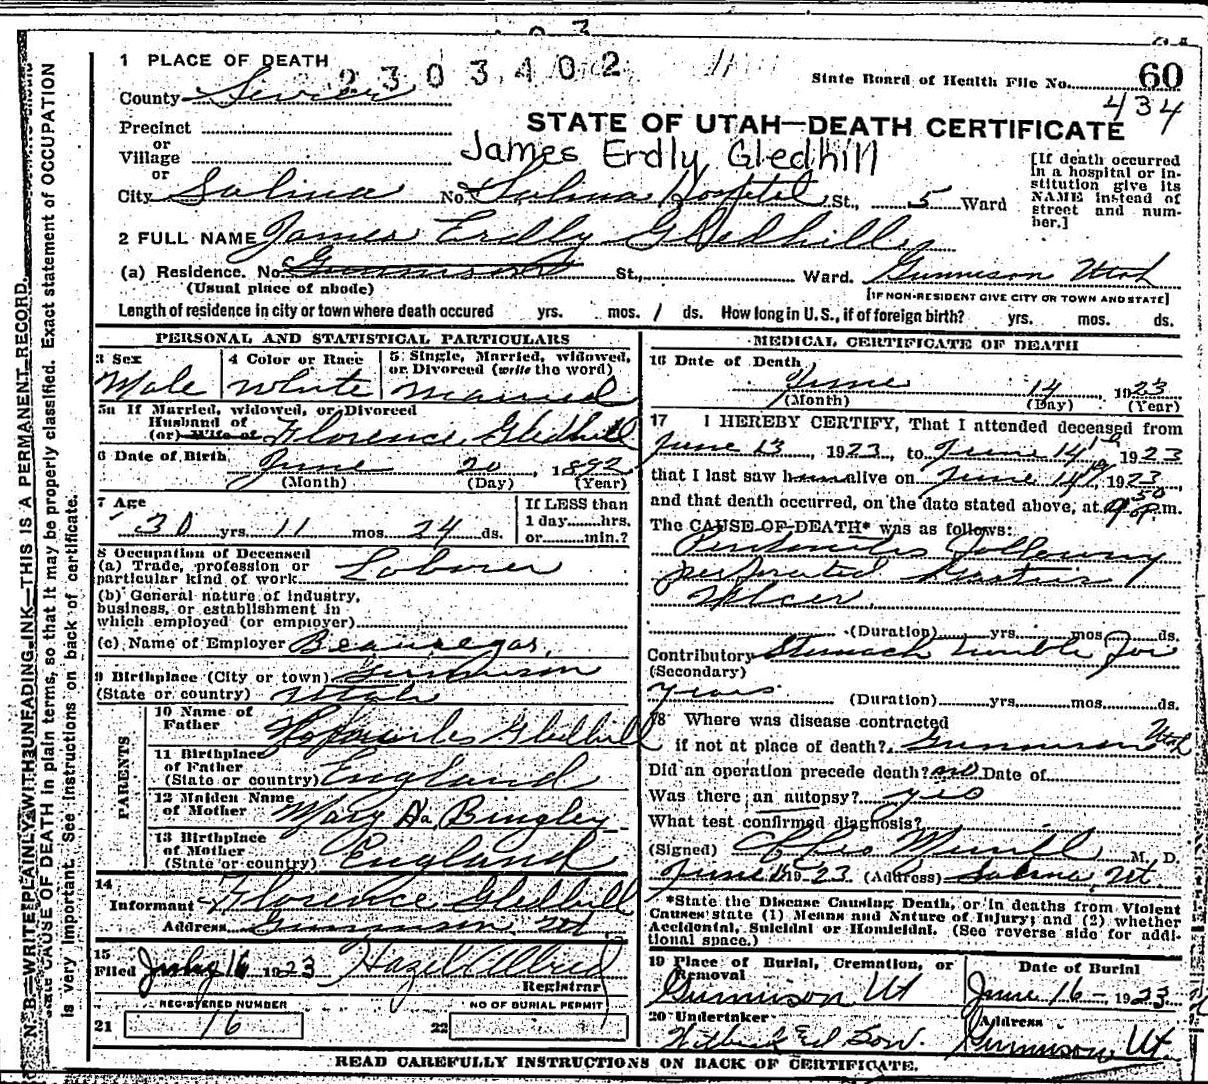 1 PLACE OF DEATH
2303402
State Board of Health File No. 60
434
County Sevier
STATE OF UTAH—DEATH CERTIFICATE
Precinct
or
Village
or
James Erdly Gledhill
[If death occurred in a hospital or institution give its NAME instead of street and number.]
City Salina No. Salina Hospital St., 5 Ward
2 FULL NAME James Erdly Gledhill
(a) Residence. No. Gunnison St., Ward. Gunnison Utah
(Usual place of abode)
[IF NON-RESIDENT GIVE CITY OR TOWN AND STATE]
Length of residence in city or town where death occured yrs. mos. 1 ds. How long in U.S., if of foreign birth? yrs. mos. ds.
PERSONAL AND STATISTICAL PARTICULARS
3 Sex
Male
4 Color or Race
White
5 Single, Married, widowed, or Divorced (write the word)
Married
5a If Married, widowed, or Divorced
Husband of
(or) Wife of Florence Gledhill
6 Date of Birth
June 20, 1892
(Month) (Day) (Year)
7 Age
30 yrs. 11 mos. 24 ds.
If LESS than
1 day......hrs.
or......min.?
8 Occupation of Deceased
(a) Trade, profession or
particular kind of work Laborer
(b) General nature of industry,
business, or establishment in
which employed (or employer)
(c) Name of Employer
9 Birthplace (City or town) Gunnison
(State or country) Utah
PARENTS
10 Name of
Father Gledhill
11 Birthplace
of Father
(State or country) England
12 Maiden Name
of Mother Mary Bingley
13 Birthplace
of Mother
(State or country) England
14
Informant Florence Gledhill
Address Gunnison Ut.
15
Filed July 16 1923 Hazel
Registrar
REGISTERED NUMBER
21 16
NO OF BURIAL PERMIT
22
MEDICAL CERTIFICATE OF DEATH
16 Date of Death
June 14 1923
(Month) (Day) (Year)
17 I HEREBY CERTIFY, That I attended deceased from
June 13, 1923, to June 14, 1923
that I last saw h alive on June 14, 1923,
and that death occurred, on the date stated above, at p.m.
The CAUSE OF DEATH* was as follows:
Peritonitis following
perforated Gastric
Ulcer.
(Duration) yrs. mos. ds.
Contributory Stomach trouble for
(Secondary)
years (Duration) yrs. mos. ds.
18 Where was disease contracted
if not at place of death? Gunnison Utah
Did an operation precede death? no Date of
Was there an autopsy? yes
What test confirmed diagnosis?
(Signed) Merrill M. D.
June 1923 (Address) Salina, Ut.
*State the Disease Causing Death, or in deaths from Violent
Causes state (1) Means and Nature of Injury; and (2) whether
Accidental, Suicidal or Homicidal. (See reverse side for additional space.)
19 Place of Burial, Cremation, or
Removal
Gunnison Ut
Date of Burial
June 16 - 1923
20 Undertaker
Address
Gunnison Ut.
READ CAREFULLY INSTRUCTIONS ON BACK OF CERTIFICATE.
N. B.—WRITE PLAINLY WITH UNFADING INK—THIS IS A PERMANENT RECORD.
state CAUSE OF DEATH in plain terms, so that it may be properly classified. Exact statement of OCCUPATION
is very important. See instructions on back of certificate.